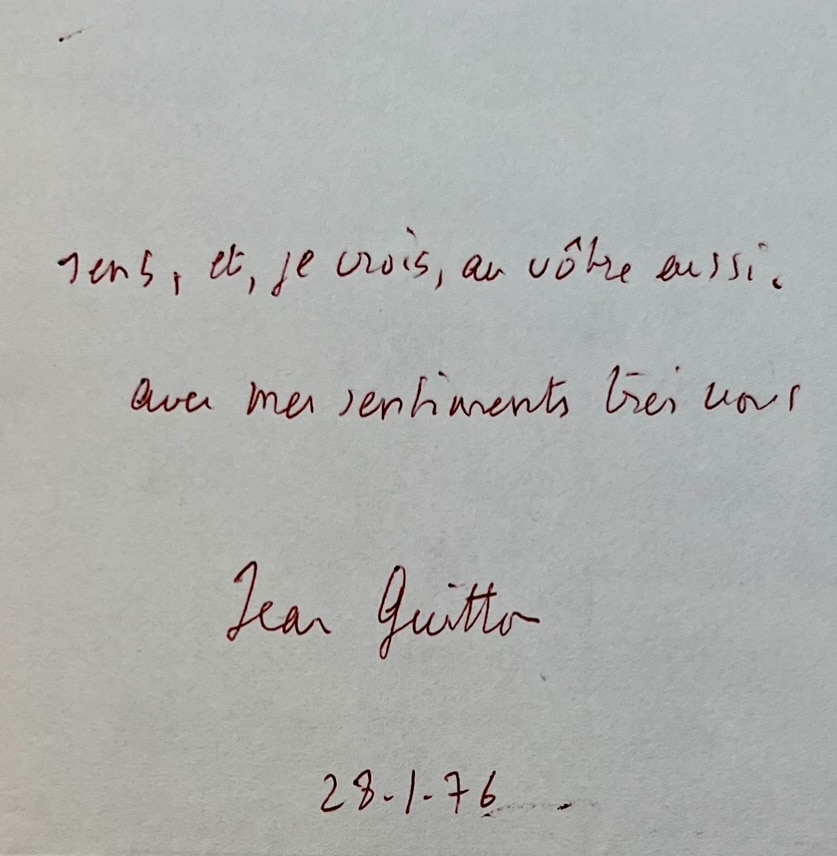 sens, et, je crois, au vôtre aussi.
avec mes sentiments très
Jean Guitton
28-1-76